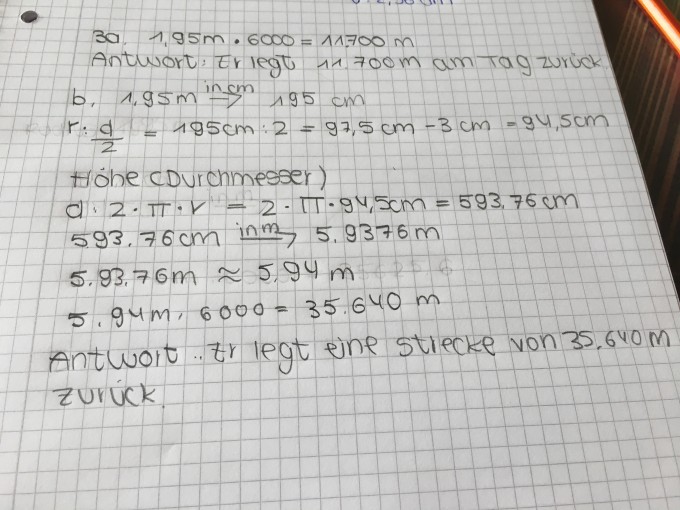 3a. 1,95m · 6000 = 11.700 m
Antwort: Er legt 11.700m am Tag zurück
b. 1,95m in cm → 195 cm
r: d/2 = 195cm : 2 = 97,5cm - 3cm = 94,5cm
Höhe (Durchmesser)
d: 2 · π · r = 2 · π · 94,5cm = 593,76cm
593,76cm in m → 5,9376m
5.93,76m ≈ 5,94m
5,94m · 6000 = 35.640 m
Antwort: Er legt eine Strecke von 35.640m
zurück.